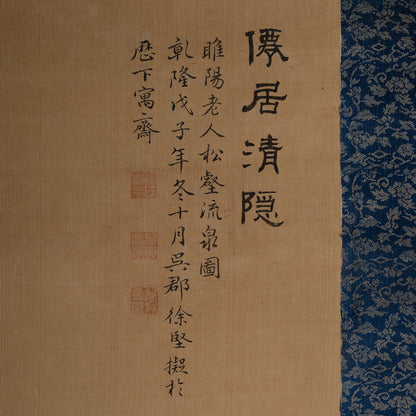 僊居清隱
睢陽老人松壑流泉圖
乾隆戊子年冬十月吳郡徐堅擬於
歷下寓齋